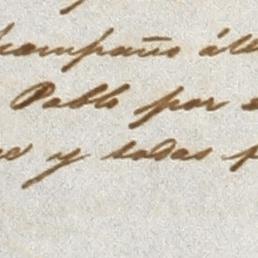 acompaño áll
Pablo por e
y todas p